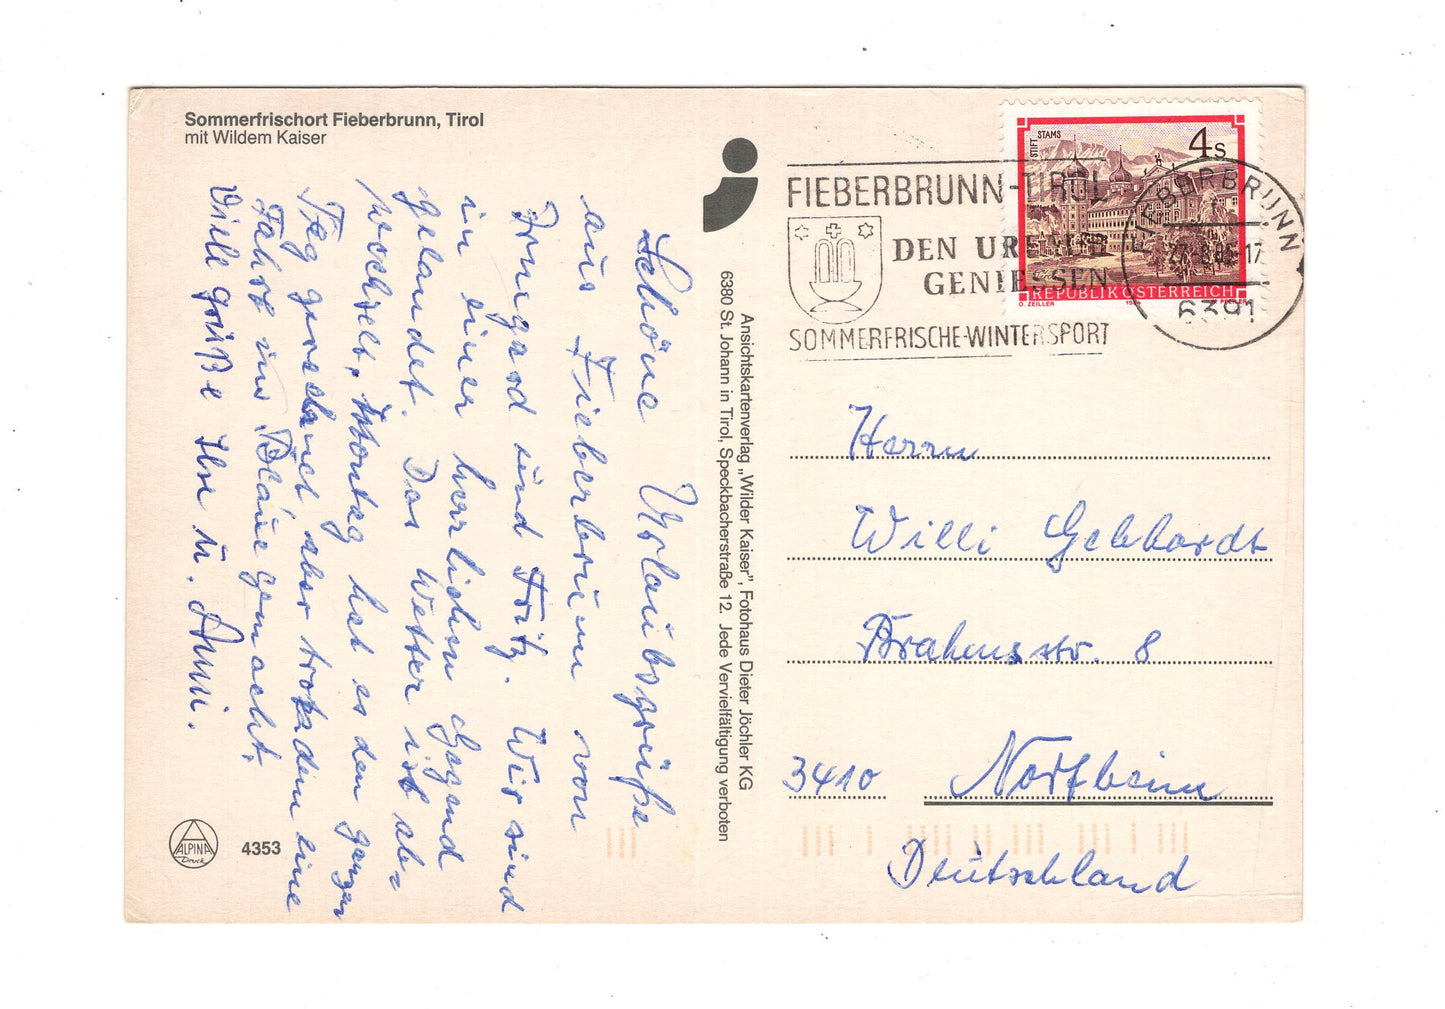 Sommerfrischort Fieberbrunn, Tirol
mit Wildem Kaiser
Schöne Urlaubsgrüße
aus Fieberbrunn von
Irmgard und Fritz. Wir sind
in einer herrlichen Gegend
gelandet. Das Wetter ist aber
wechsel, Montag hat es den ganzen
Tag geregnet aber trotzdem eine
Fahrt ins Blaue gemacht.
Viele grüße Ihre u. Anni.
ALPINA
Druck
4353
Ansichtskartenverlag „Wilder Kaiser”, Fotohaus Dieter Jöchler KG
6380 St. Johann in Tirol, Speckbacherstraße 12. Jede Vervielfältigung verboten
FIEBERBRUNN-TIROL
DEN URLAUB
GENIESSEN
SOMMERFRISCHE-WINTERSPORT
STIFT STAMS
4 S
REPUBLIK ÖSTERREICH
O. ZEILLER
FIEBERBRUNN
6391
Herrn
Willi Gebhardt
Brahmsstr. 8
3410 Northeim
Deutschland